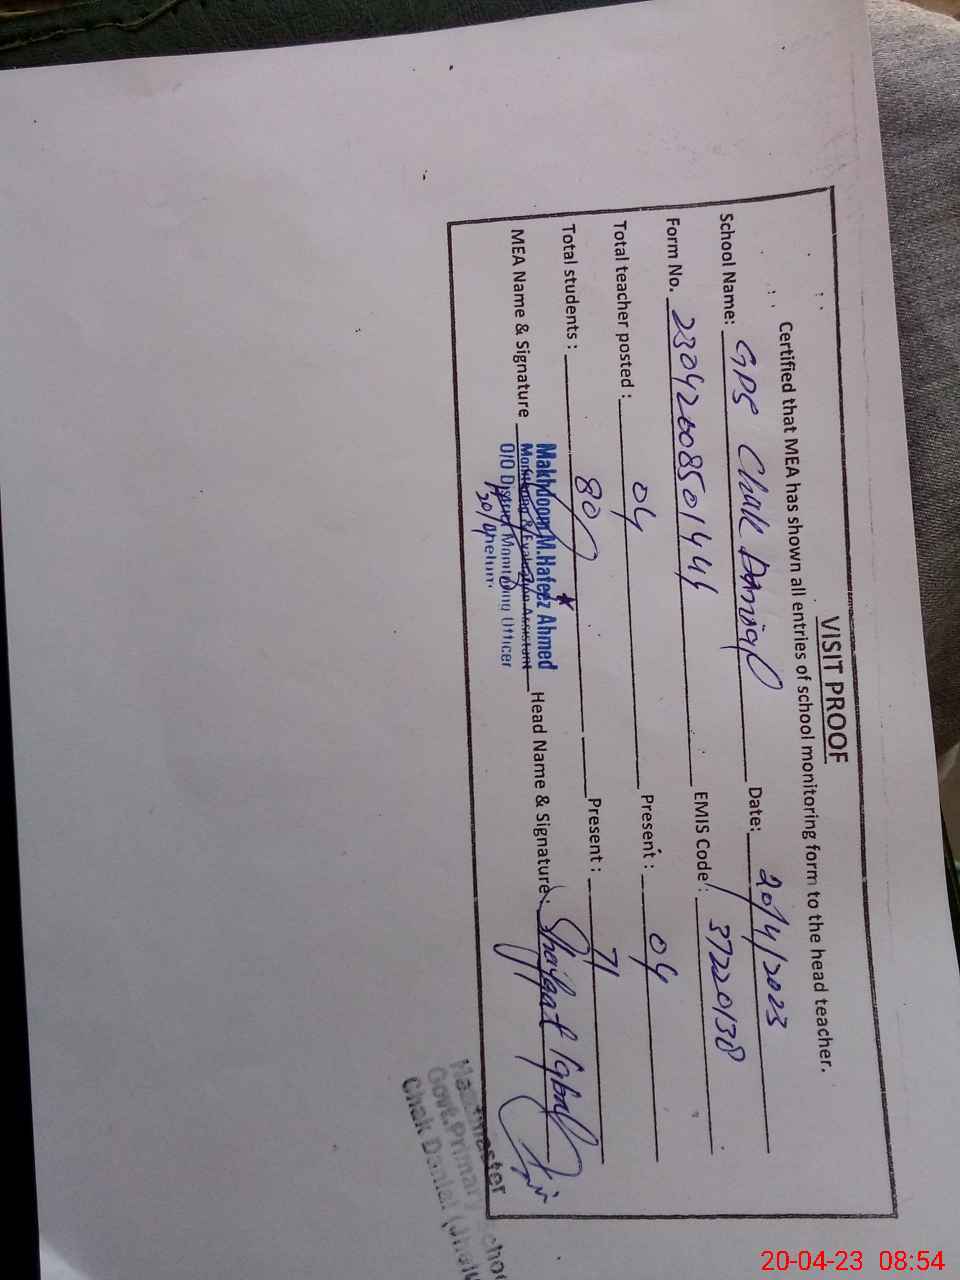 VISIT PROOF
Certified that MEA has shown all entries of school monitoring form to the head teacher.
School Name: GPS Chak Danial Date: 20/4/2023
Form No. EMIS Code: 37220138
Total teacher posted: 04 Present: 04
Total students: 80 Present: 71
MEA Name & Signature Makhdoom M.Hafeez Ahmed Head Name & Signature: Shafqat Iqbal
Monitoring & Evaluation Assistant
O/O District Monitoring Officer
20/4 Jhelum
Headmaster
Govt.Primary School
Chak Daniel (Jhelu
20-04-23 08:54